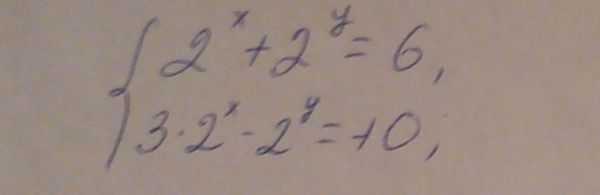 2^x + 2^y = 6,
3·2^x - 2^y = 10;